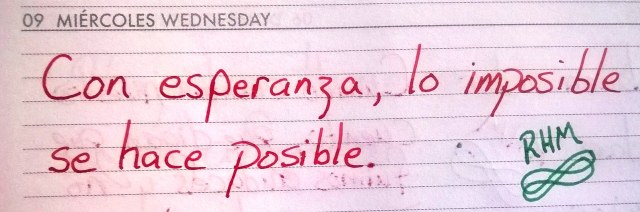 09 MIÉRCOLES WEDNESDAY
Con esperanza, lo imposible
se hace posible.
RHM